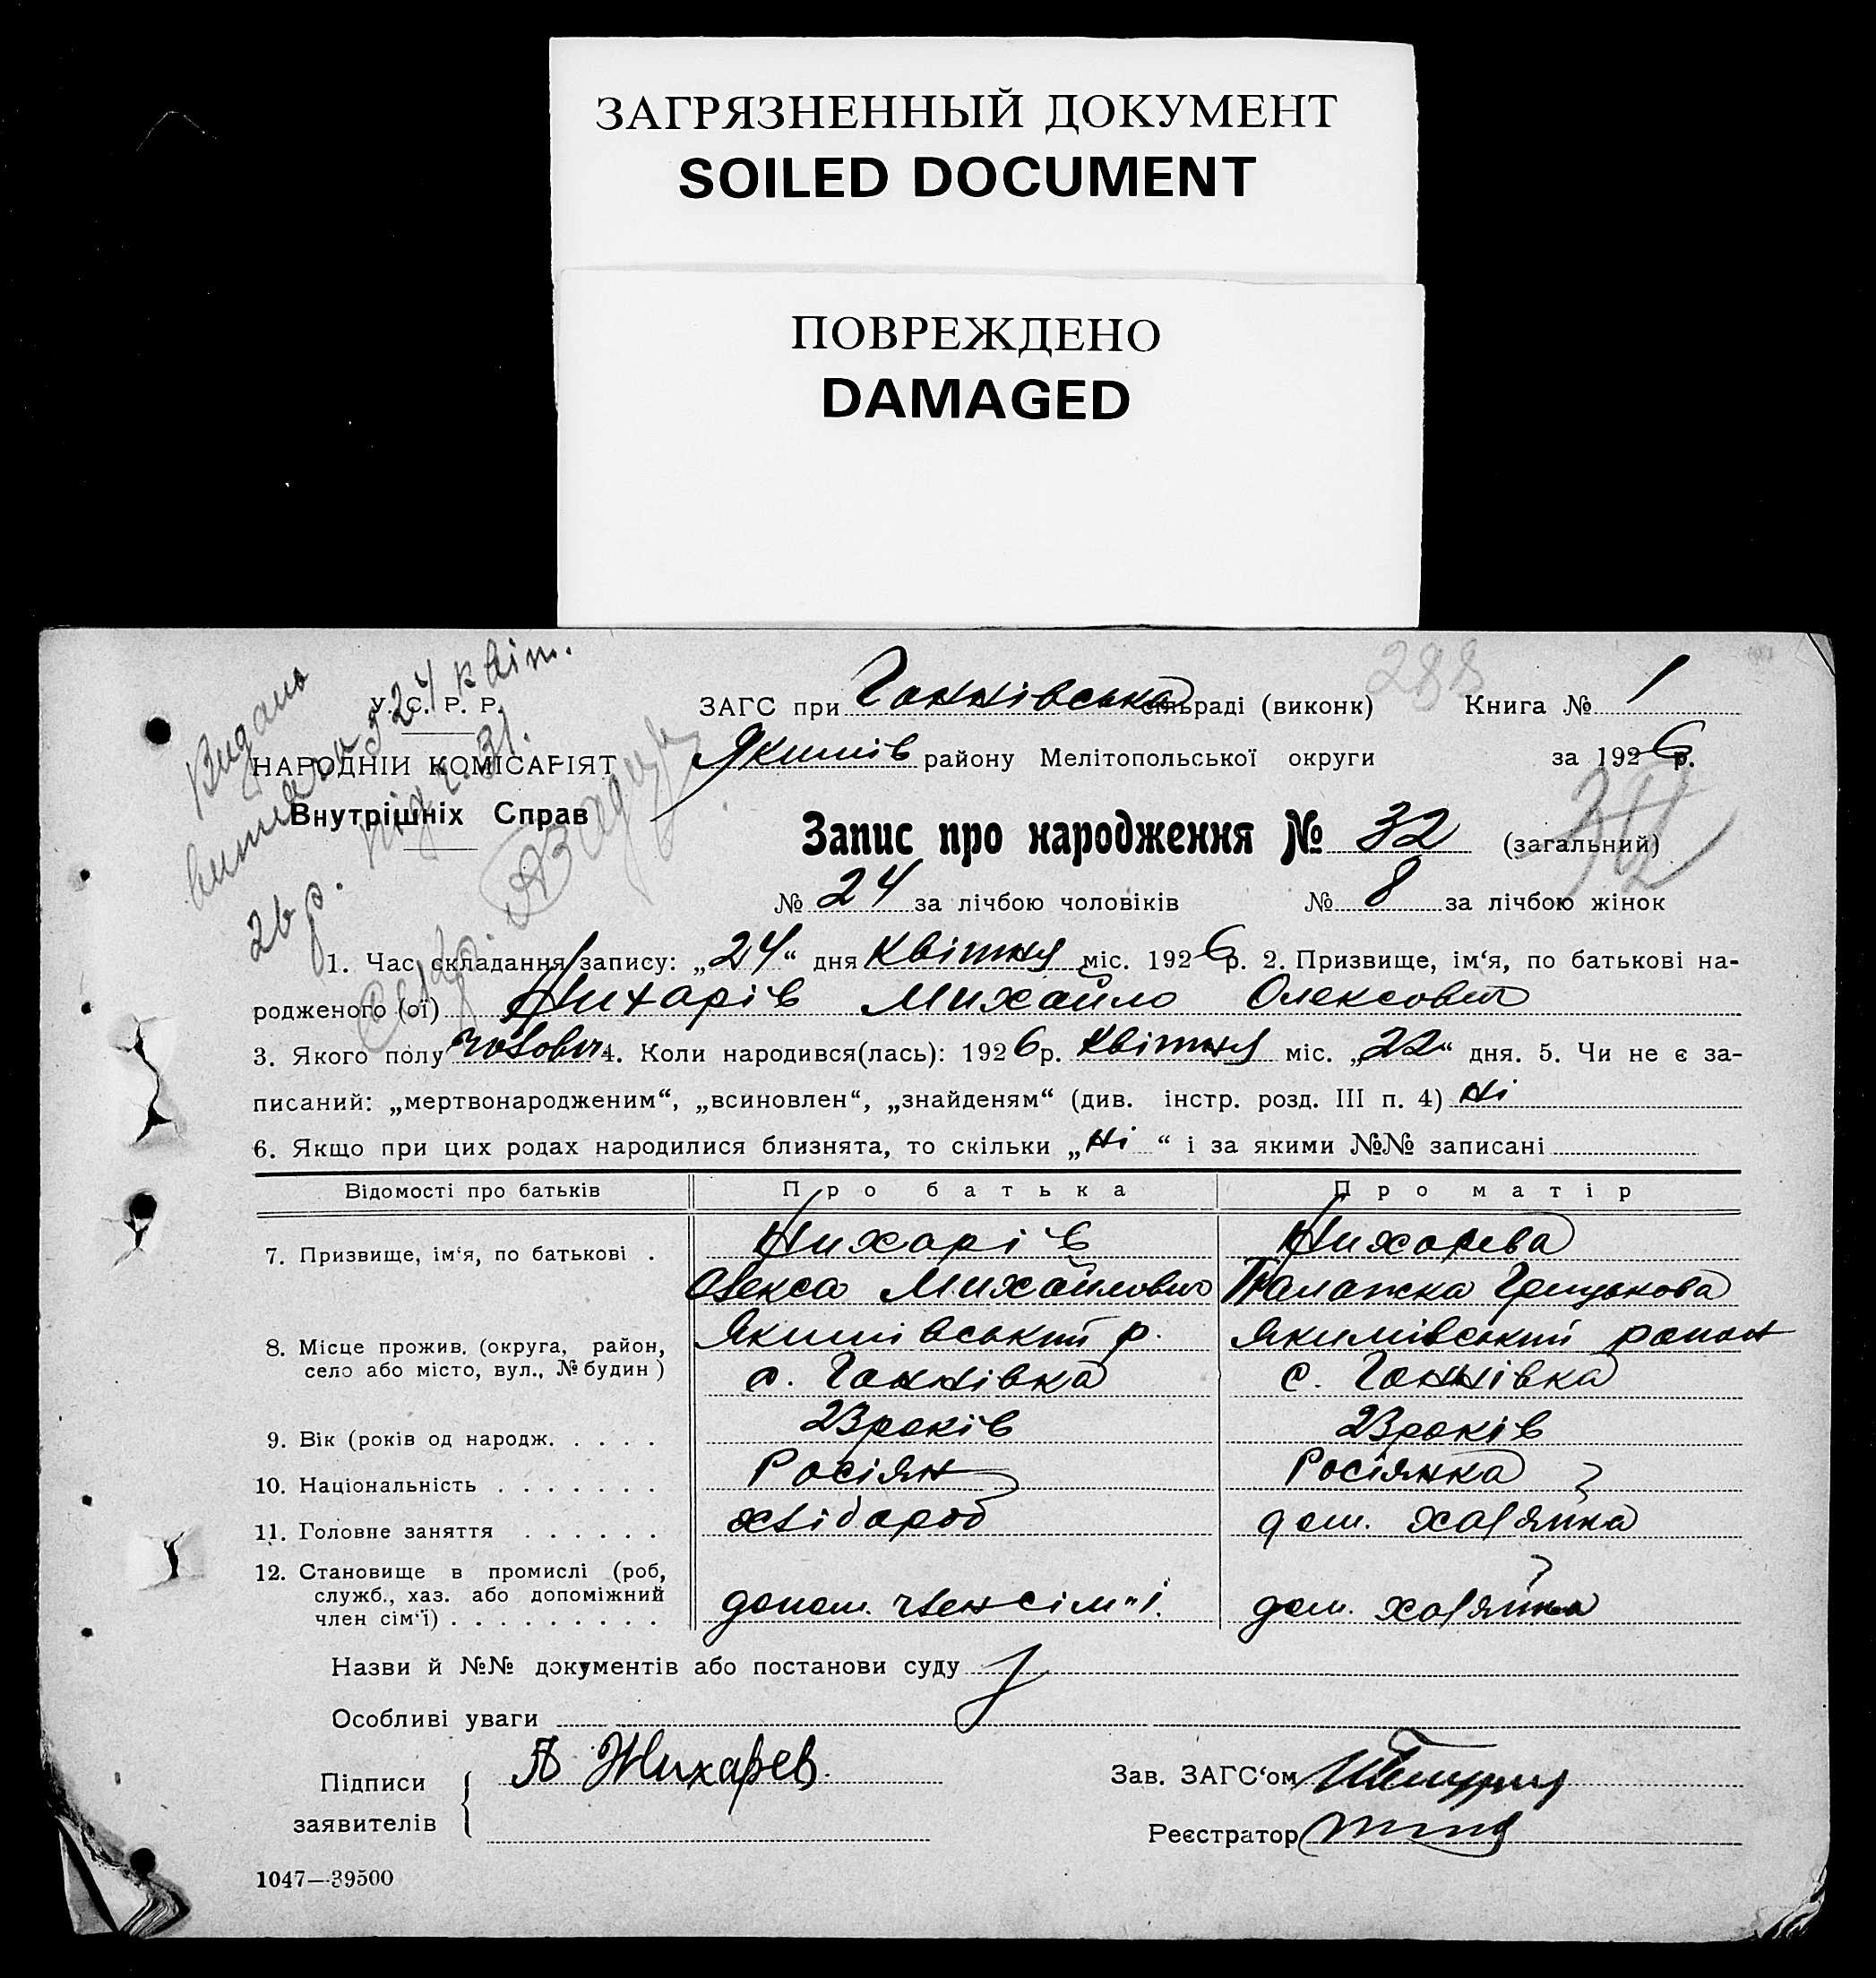 ЗАГРЯЗНЕННЫЙ ДОКУМЕНТ
SOILED DOCUMENT
ПОВРЕЖДЕНО
DAMAGED
288
Видано
24 квіт.
26 р. під ч. 31.
У. С. Р. Р.
НАРОДНІЙ КОМІСАРІЯТ
Внутрішніх Справ
ЗАГС при Ганнівська сільраді (виконк) Книга № 1
Якимів району Мелітопольської округи за 1926 р.
Запис про народження № 32 (загальний)
32
№ 24 за лічбою чоловіків № 8 за лічбою жінок
1. Час складання запису: „24“ дня Квітня міс. 1926 р. 2. Призвище, ім‘я, по батькові на-
родженого (ої) Жихарів Михайло Олексович
3. Якого полу чолович 4. Коли народився(лась): 1926 р. Квітня міс. „22“ дня. 5. Чи не є за-
писаний: „мертвонародженим“, „всиновлен“, „знайденям“ (див. інстр. розд. III п. 4) Ні
6. Якщо при цих родах народилися близнята, то скільки „Ні“ і за якими №№ записані
Відомості про батьків Про батька Про матір
7. Призвище, ім‘я, по батькові . Жихарів Жихарева
Олекса Михайлович Палажка Грицькова
8. Місце прожив. (округа, район, село або місто, вул., № будин) Якимівський р. Якимівський район
с. Ганнівка с. Ганнівка
9. Вік (років од народж. . . . . 23 років 23 років
10. Національність . . . . . . . Росіян Росіянка
11. Головне заняття . . . . . . хлібороб дом. хазяйка
12. Становище в промислі (роб, служб., хаз. або допоміжний член сім‘ї) . . . . . . . . . допом. член сім"ї. дом. хазяйка
Назви й №№ документів або постанови суду
Особливі уваги
Підписи заявителів А Жихарев.
Зав. ЗАГС‘ом
Реєстратор
1047—39500